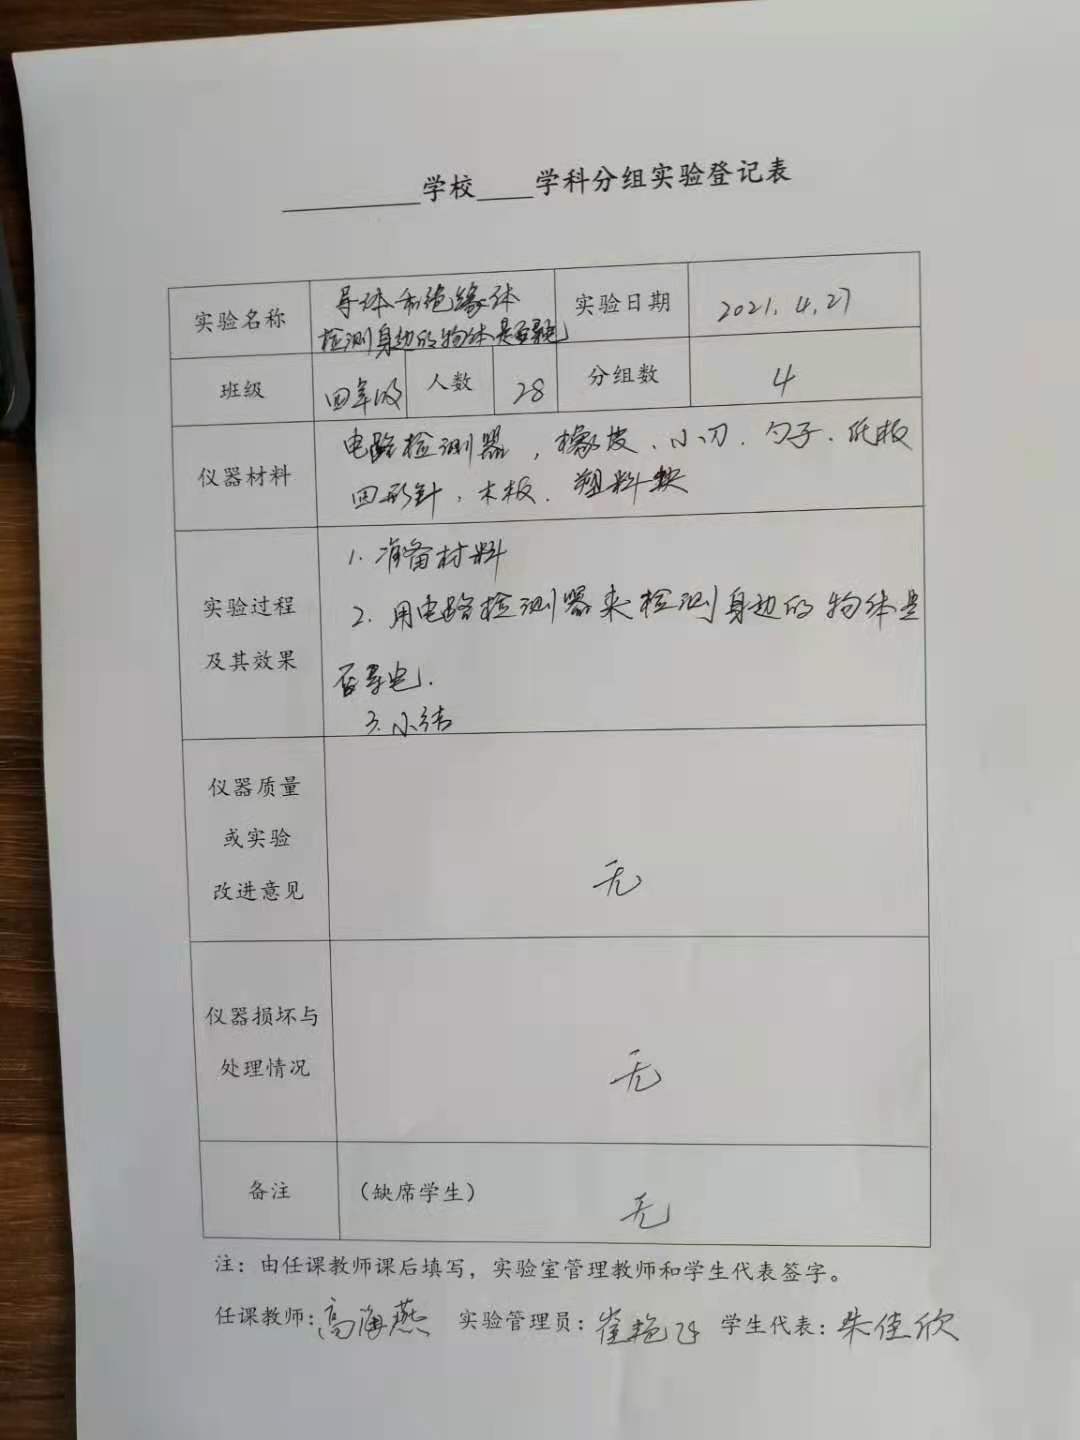 ________学校____学科分组实验登记表
实验名称 导体和绝缘体 实验日期 2021.4.27
检测身边的物体是否导电
班级 四年级 人数 28 分组数 4
仪器材料 电路检测器，橡皮、小刀、勺子、纸板
回形针、木板、塑料块
1.准备材料
实验过程 2.用电路检测器来检测身边的物体是
及其效果 否导电.
3.小结
仪器质量
或实验
改进意见 无
仪器损坏与
处理情况 无
备注 （缺席学生） 无
注：由任课教师课后填写，实验室管理教师和学生代表签字。
任课教师：高海燕 实验管理员：崔艳 学生代表：朱佳欣